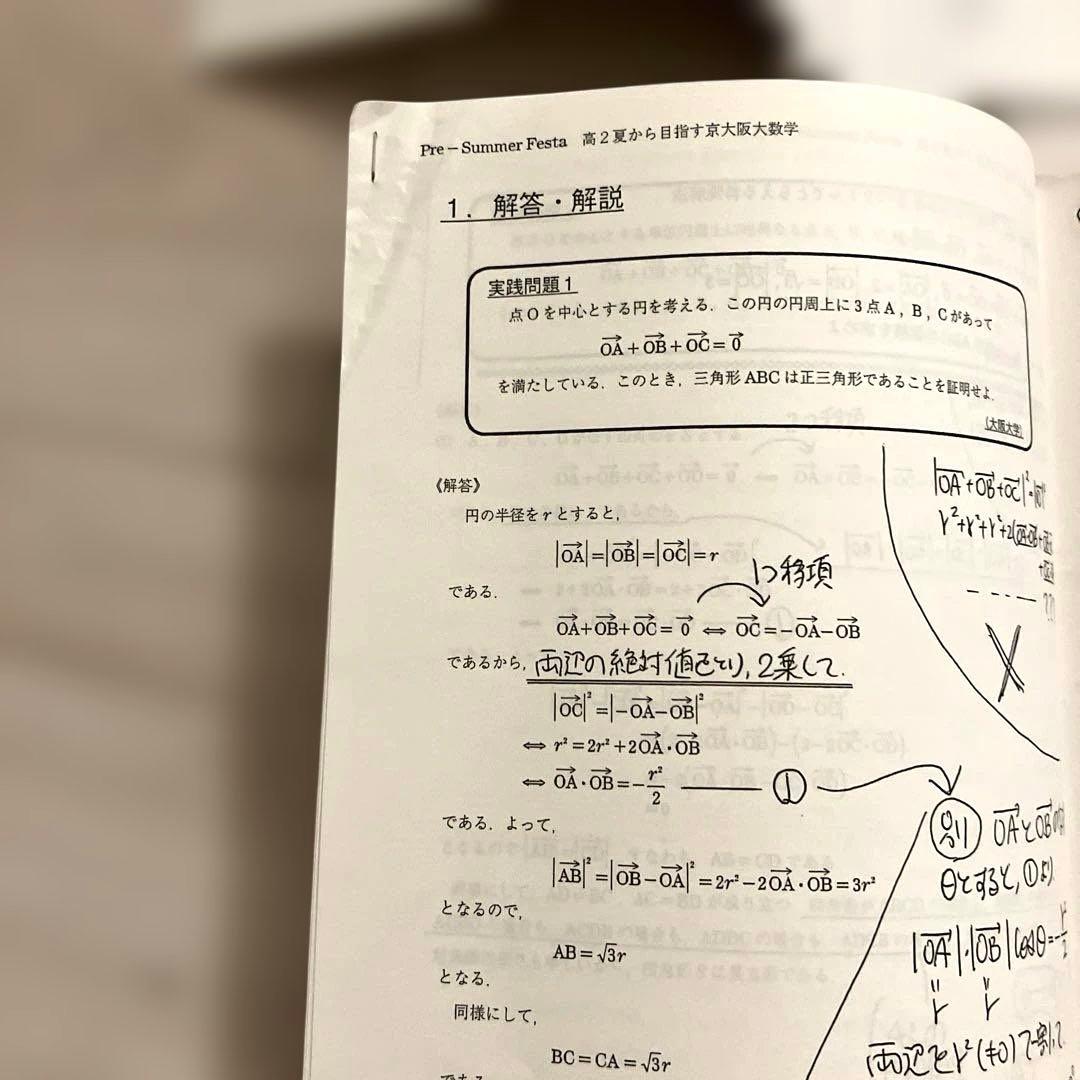 Pre－Summer Festa 高２夏から目指す京大阪大数学
１．解答・解説
実践問題１
点Ｏを中心とする円を考える．この円の円周上に３点Ａ，Ｂ，Ｃがあって
$\overrightarrow{OA}+\overrightarrow{OB}+\overrightarrow{OC}=\vec{0}$
を満たしている．このとき，三角形ABCは正三角形であることを証明せよ．
（大阪大学）
《解答》
円の半径をrとすると，
$|\overrightarrow{OA}|=|\overrightarrow{OB}|=|\overrightarrow{OC}|=r$
である．
1つ移項
$\overrightarrow{OA}+\overrightarrow{OB}+\overrightarrow{OC}=\vec{0} \Leftrightarrow \overrightarrow{OC}=-\overrightarrow{OA}-\overrightarrow{OB}$
であるから，両辺の絶対値をとり，2乗して．
$|\overrightarrow{OC}|^2=|-\overrightarrow{OA}-\overrightarrow{OB}|^2$
$\Leftrightarrow r^2=2r^2+2\overrightarrow{OA}\cdot\overrightarrow{OB}$
$\Leftrightarrow \overrightarrow{OA}\cdot\overrightarrow{OB}=-\frac{r^2}{2}$ ①
である．よって，
$|\overrightarrow{AB}|^2=|\overrightarrow{OB}-\overrightarrow{OA}|^2=2r^2-2\overrightarrow{OA}\cdot\overrightarrow{OB}=3r^2$
となるので，
$AB=\sqrt{3}r$
となる．
同様にして，
$BC=CA=\sqrt{3}r$
$|\overrightarrow{OA}+\overrightarrow{OB}+\overrightarrow{OC}|^2=$
$r^2+r^2+r^2+2(\overrightarrow{OA}\cdot\overrightarrow{OB}+$
??
X
別 $\overrightarrow{OA}$と$\overrightarrow{OB}$
θとすると，①より
$|\overrightarrow{OA}|\cdot|\overrightarrow{OB}|\cos\theta=-\frac{r^2}{2}$
r r
両辺をr²(≠0)で割って